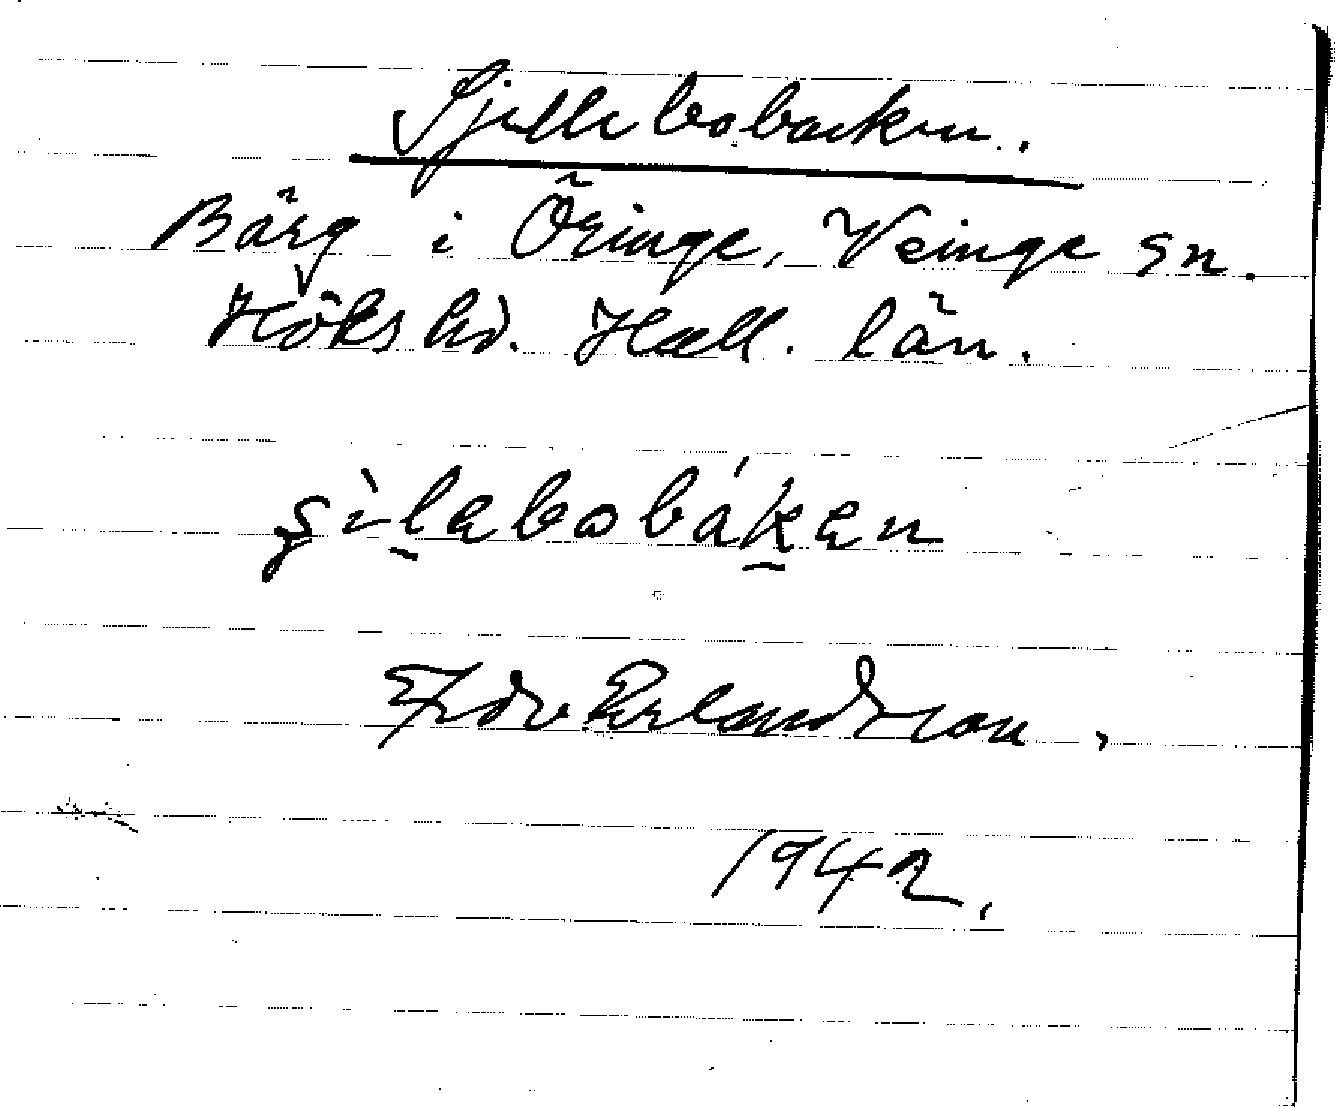 Sjillebobacken.
Bärg i Öringe, Veinge sn.
Höks hd. Hall. län.
şìlabobákan
Edv. Erlandsson.
1942.